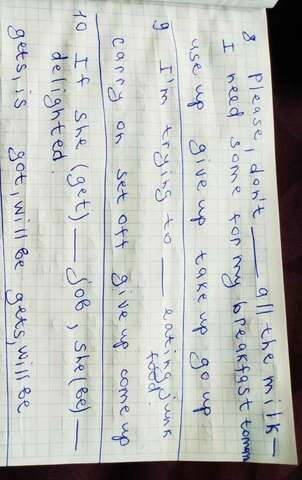 8 please, don't ___ all the milk-
I need some for my breakfast tomm
use up give up take up go up
9 I'm trying to ___ eating junk
food.
carry on set off give up come up
10 If she (get) — job, she (be) —
delighted.
gets, is got, will be gets, will be